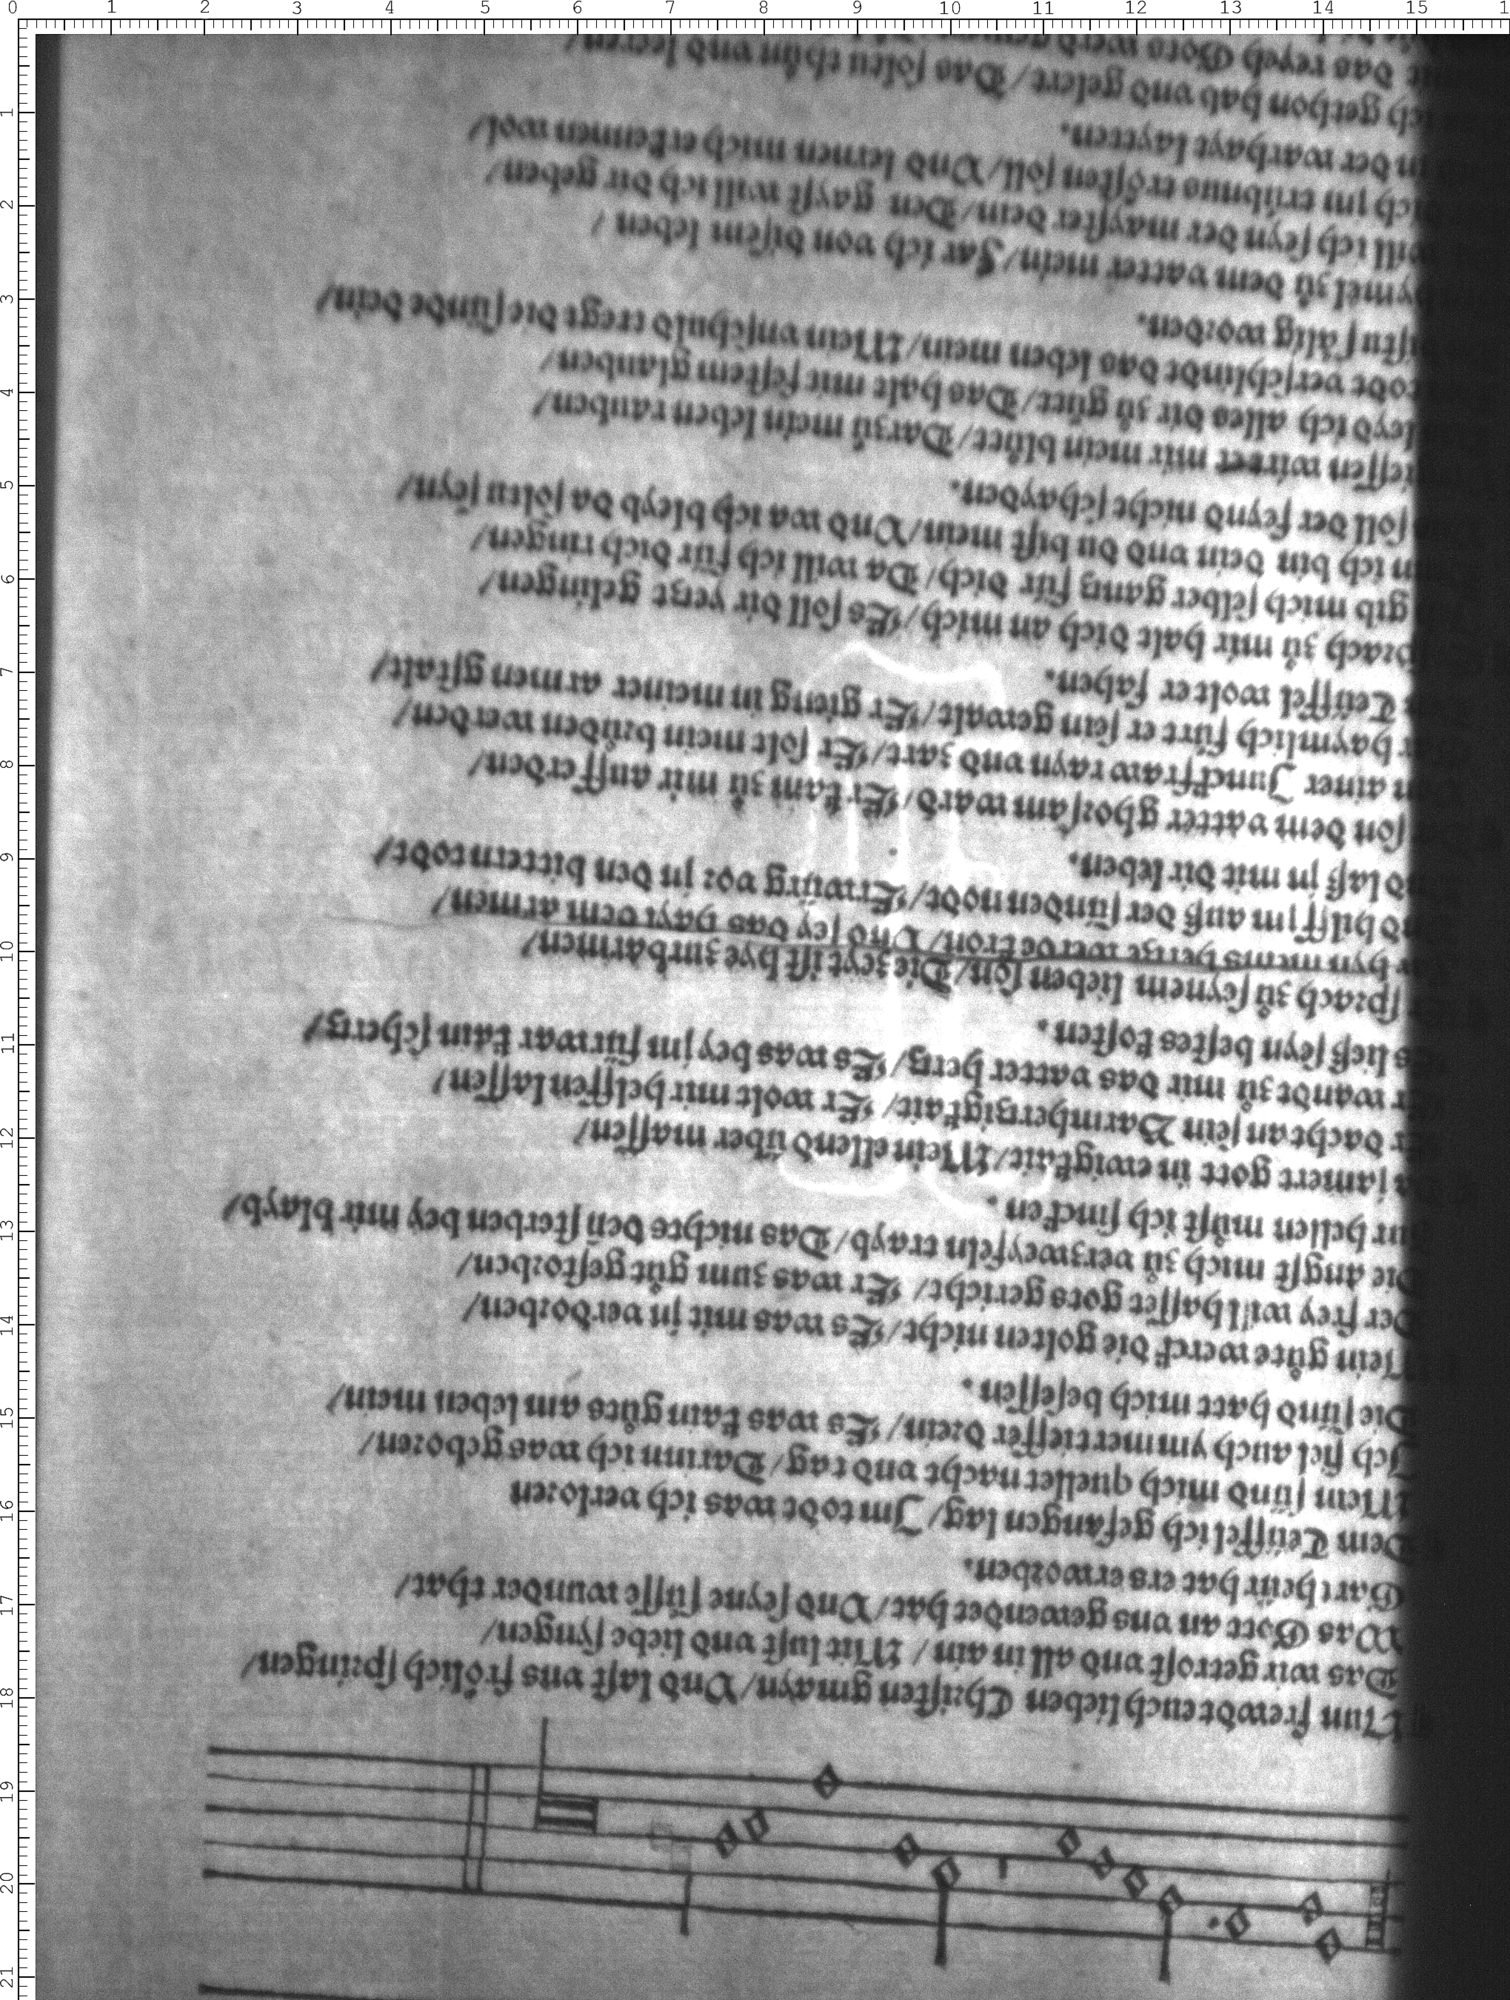 Nun frewdt euch lieben Christen gmayn/ Vnd last vns frölich springen/
Das wir getrost vnd all in ain/ Mit lust vnd liebe syngen/
Was Gott an vns gewendet hat/ Vnd seyne süsse wunder that/
Gar theür hat ers erworben.
Dem Teüffel ich gefangen lag/ Im todt was ich verloren
Mein sünd mich quellet nacht vnd tag/ Darinn ich was geboren/
Ich fiel auch ymmer tieffer drein/ Es was kain gůts am leben mein/
Die sünd hatt mich besessen.
Mein gůte werck die golten nicht/ Es was mit jn verdorben/
Der frey will hasset gots gericht/ Er was zum gůt gestorben/
Die angst mich zů verzweyfeln trayb/ Das nichts den sterben bey mir blayb/
zur hellen můst ich sincken.
jamert gott in ewigkait/ Mein ellend über massen/
Er dacht an sein Barmhertzigkait/ Er wolt mir helffen lassen/
Er wandt zů mir das vatter hertz/ Es was bey jm fürwar kain schertz/
es ließ seyn bestes kosten.
Er sprach zů seynem lieben son/ Die zeyt ist hye zurbarmen/
far hyn meins hertze werde kron/ Vnd sey das hayl dem armen/
vnd hilff jm auß der sünden nodt/ Erwürg vor jn den bittern todt/
vnd laß jn mit dir leben.
son dem vatter ghorsam ward/ Er kam zů mir auff erden/
ainer Junckfraw rayn vnd zart/ Er solt mein brůder werden/
haymlich fürt er sein gewalt/ Er gieng in meiner armen gstalt/
Teüffel wolt er fahen.
sprach zů mir halt dich an mich/ Es soll dir yetzt gelingen/
gib mich selber gantz für dich/ Da will ich für dich ringen/
ich bin dein vnd du bist mein/ Vnd wa ich bleyb da soltu seyn/
soll der feynd nicht schayden.
mir mein blůt/ Darzů mein leben rauben/
leyd ich alles dir zů gůt/ Das halt mit festem glauben/
todt verschlindt das leben mein/ Mein vnschuld tregt die sünde dein/
bistu sälig worden.
hymel zů dem vatter mein/ Far ich von disem leben/
will ich seyn der mayster dein/ Den gayst will ich dir geben/
dich jm trübnus trösten soll/ Vnd lernen mich erkennen wol/
in der warhayt laytten.
ich gethon hab vnd gelert/ Das soltu thůn vnd leeren/
das reych Gots werd